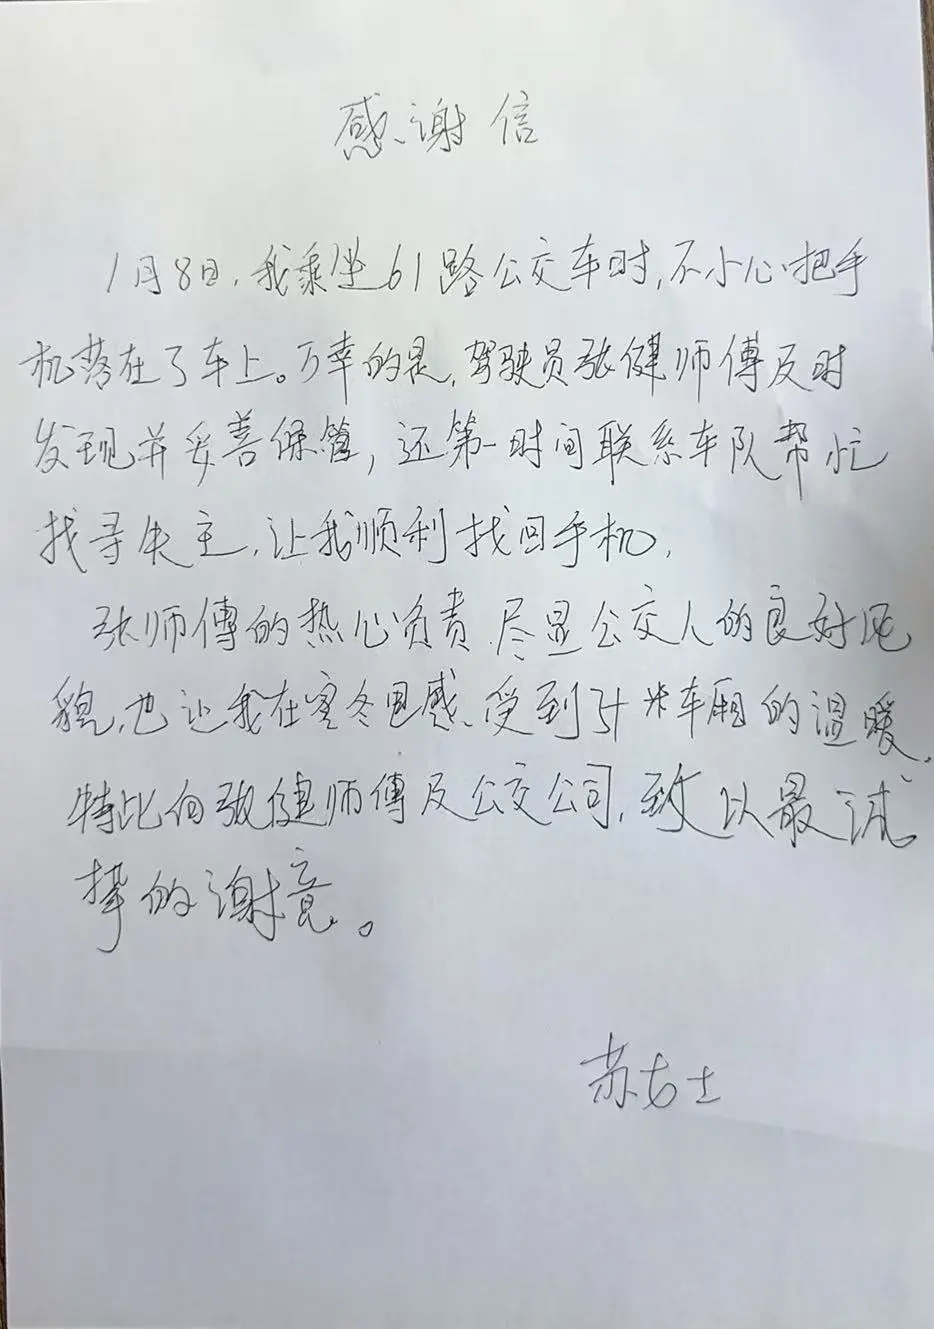 感谢信
1月8日,我乘坐61路公交车时,不小心把手
机落在了车上。万幸的是,驾驶员张健师傅及时
发现并妥善保管,还第一时间联系车队帮忙
找寻失主,让我顺利找回手机,
张师傅的热心负责,尽显公交人的良好风
貌,也让我在寒冬里感受到了米车厢的温暖,
特此向张健师傅及公交公司,致以最诚
挚的谢意。
苏女士